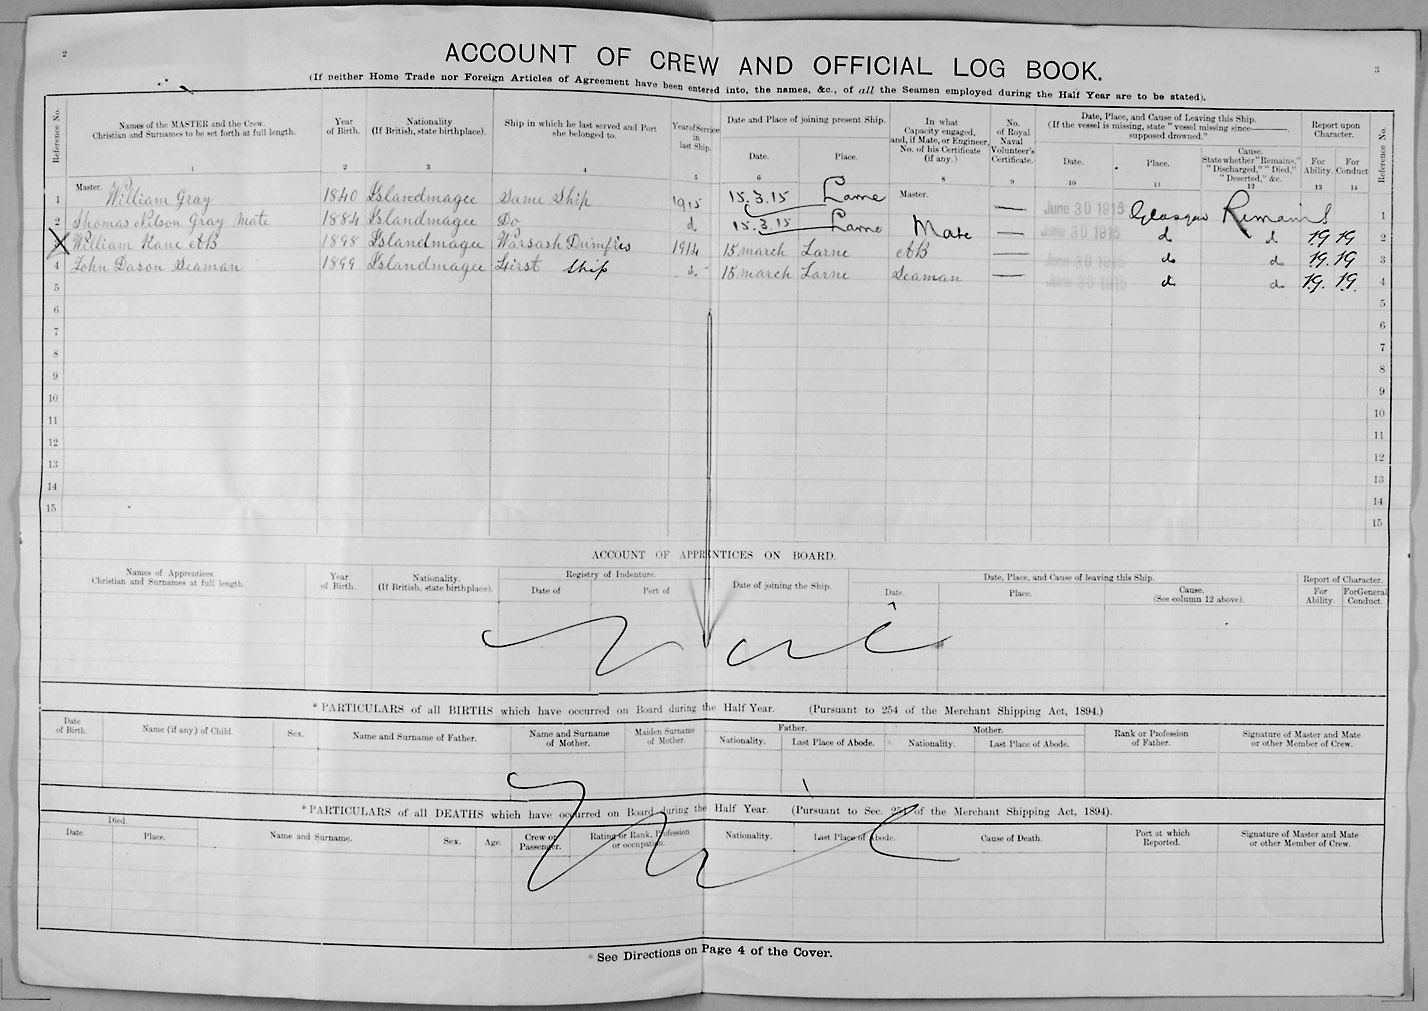 2
3
ACCOUNT OF CREW AND OFFICIAL LOG BOOK.
(If neither Home Trade nor Foreign Articles of Agreement have been entered into, the names, &c., of all the Seamen employed during the Half Year are to be stated).
Reference No. Names of the MASTER and the Crew. Christian and Surnames to be set forth at full length. Year of Birth. Nationality (If British, state birthplace). Ship in which he last served and Port she belonged to. Year of Service in last Ship. Date and Place of joining present Ship. In what Capacity engaged, and, if Mate, or Engineer, No. of his Certificate (if any.) No. of Royal Naval Volunteer's Certificate. Date, Place, and Cause of Leaving this Ship. (If the vessel is missing, state "vessel missing since—— supposed drowned." Report upon Character. Reference No.
Date. Place. Date. Place. Cause. State whether "Remains," "Discharged," "Died," "Deserted," &c. For Ability. For Conduct
1 2 3 4 5 6 8 9 10 11 12 13 14
Master.
1 William Gray 1840 Islandmagee Same Ship 1915 15.3.15 Larne Master. — June 30 1915 Glasgow Remains 1
2 Thomas Nilson Gray Mate 1884 Islandmagee Do d 15.3.15 Larne Mate — June 30 1915 d d 19 19 2
William Kane AB 1898 Islandmagee Warsash Dumfries 1914 15 march Larne AB — June 30 1915 d d 19. 19 3
4 John Dason Seaman 1899 Islandmagee First Ship d 15 march Larne Seaman — June 30 1915 d d 19. 19. 4
5 5
6 6
7 7
8 8
9 9
10 10
11 11
12 12
13 13
14 14
15 15
ACCOUNT OF APPRENTICES ON BOARD.
Names of Apprentices. Christian and Surnames at full length. Year of Birth. Nationality. (If British, state birthplace). Registry of Indenture. Date of joining the Ship. Date, Place, and Cause of leaving this Ship. Report of Character.
Date of Port of Date. Place. Cause. (See column 12 above). For Ability. For General Conduct.
* PARTICULARS of all BIRTHS which have occurred on Board during the Half Year. (Pursuant to 254 of the Merchant Shipping Act, 1894.)
Date of Birth. Name (if any) of Child. Sex. Name and Surname of Father. Name and Surname of Mother. Maiden Surname of Mother. Father. Mother. Rank or Profession of Father. Signature of Master and Mate or other Member of Crew.
Nationality. Last Place of Abode. Nationality. Last Place of Abode.
* PARTICULARS of all DEATHS which have occurred on Board during the Half Year. (Pursuant to Sec. 254 of the Merchant Shipping Act, 1894).
Died. Name and Surname. Sex. Age. Crew or Passenger. Rating or Rank, Profession or occupation. Nationality. Last Place of Abode. Cause of Death. Port at which Reported. Signature of Master and Mate or other Member of Crew.
Date. Place.
* See Directions on Page 4 of the Cover.